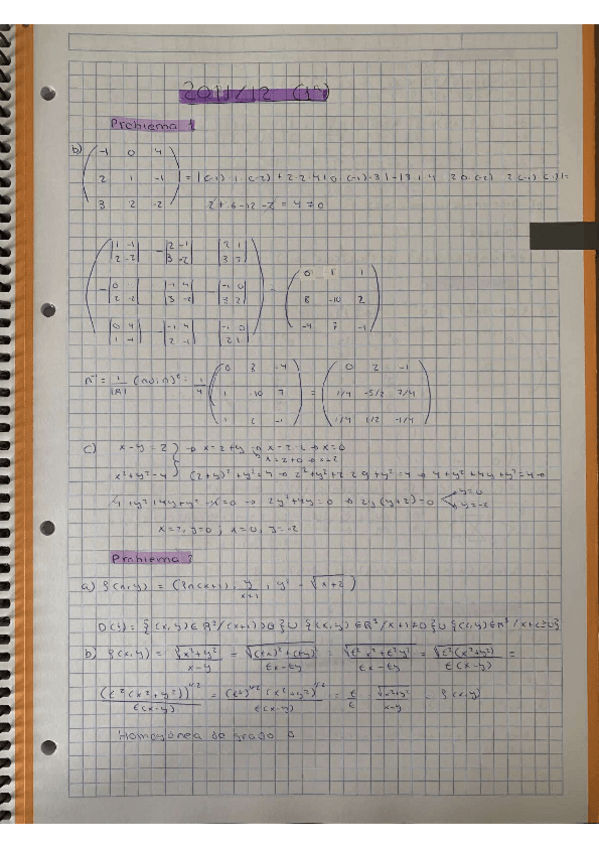 2011/12 (1ª)
Problema 1
b) ( -1 0 4
2 1 -1
3 2 -2 ) = 
2+16-12-2 = 4 ≠ 0
|1 -1| -|2 -1| |2 1|
|2 -2| |3 -2| |3 2|
-|0 4| |-1 4| -|-1 0|
|2 -2| |3 -2| |3 2|
|0 4| -|-1 4| |-1 0|
|1 -1| |2 -1| |2 1|
0 1 1
8 -10 2
-4 7 -1
= 1/|A| = 1/4
0 8 -4
1 -10 7
1 2 -1
=
0 2 -1
1/4 -5/2 7/4
1/4 1/2 -1/4
c) x-y=2 } → x=2+y x=2-2 → x=0
x=2+0 → x=2
x²+y²=4 } (2+y)²+y²=4 → 2²+y²+2·2y+y²=4 → 4+y²+4y+y²=4 →
4+y²+4y+y²-4=0 → 2y²+4y=0 → 2y(y+2)=0 y=0
y=-2
x=2, y=0 ; x=0, y=-2
Problema
a) f(x,y) = (ln(x+1), y/(x+1), y² - √(x+2))
D(f) = {(x,y)∈R²/(x+1)>0}∪{(x,y)∈R²/x+1≠0}∪{(x,y)∈R²/x+2≥0}
b) f(x,y) = √(x²+y²)/(x-y) = √((tx)²+(ty)²)/(tx-ty) = √(t²x²+t²y²)/(tx-ty) = √(t²(x²+y²))/(t(x-y)) =
(t²(x²+y²))^1/2/(t(x-y)) = (t²)^1/2(x²+y²)^1/2/(t(x-y)) = t/t · √(x²+y²)/(x-y) = f(x,y)
Homogénea de grado 0